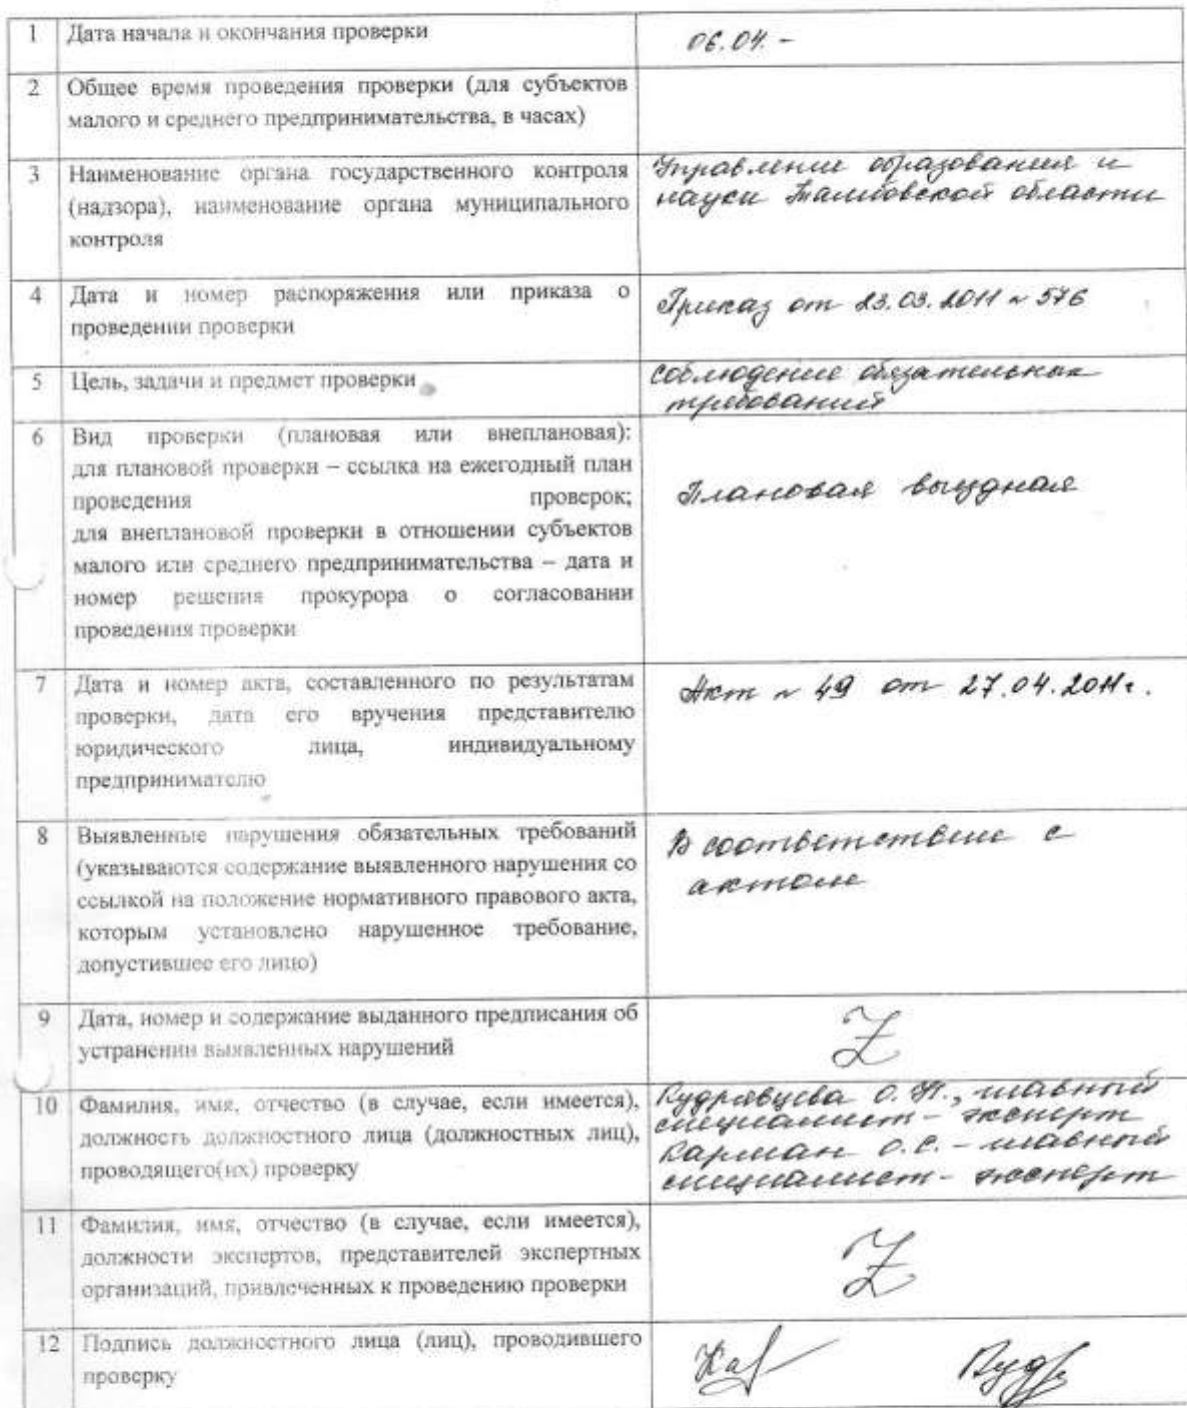 1 Дата начала и окончания проверки
06.04. -
2 Общее время проведения проверки (для субъектов
малого и среднего предпринимательства, в часах)
3 Наименование органа государственного контроля
(надзора), наименование органа муниципального
контроля
Управление образования и
науки Тамбовской области
4 Дата и номер распоряжения или приказа о
проведении проверки
Приказ от 23.03.2011 № 576
5 Цель, задачи и предмет проверки
соблюдение обязательных
требований
6 Вид проверки (плановая или внеплановая):
для плановой проверки – ссылка на ежегодный план
проведения проверок;
для внеплановой проверки в отношении субъектов
малого или среднего предпринимательства – дата и
номер решения прокурора о согласовании
проведения проверки
Плановая выездная
7 Дата и номер акта, составленного по результатам
проверки, дата его вручения представителю
юридического лица, индивидуальному
предпринимателю
Акт № 49 от 27.04.2011г.
8 Выявленные нарушения обязательных требований
(указываются содержание выявленного нарушения со
ссылкой на положение нормативного правового акта,
которым установлено нарушенное требование,
допустившее его лицо)
В соответствии с
актом
9 Дата, номер и содержание выданного предписания об
устранении выявленных нарушений
Z
10 Фамилия, имя, отчество (в случае, если имеется),
должность должностного лица (должностных лиц),
проводящего(их) проверку
Кудрявцева О.Н., главный
специалист - эксперт
Карман О.С. - главный
специалист - эксперт
11 Фамилия, имя, отчество (в случае, если имеется),
должности экспертов, представителей экспертных
организаций, привлеченных к проведению проверки
Z
12 Подпись должностного лица (лиц), проводившего
проверку